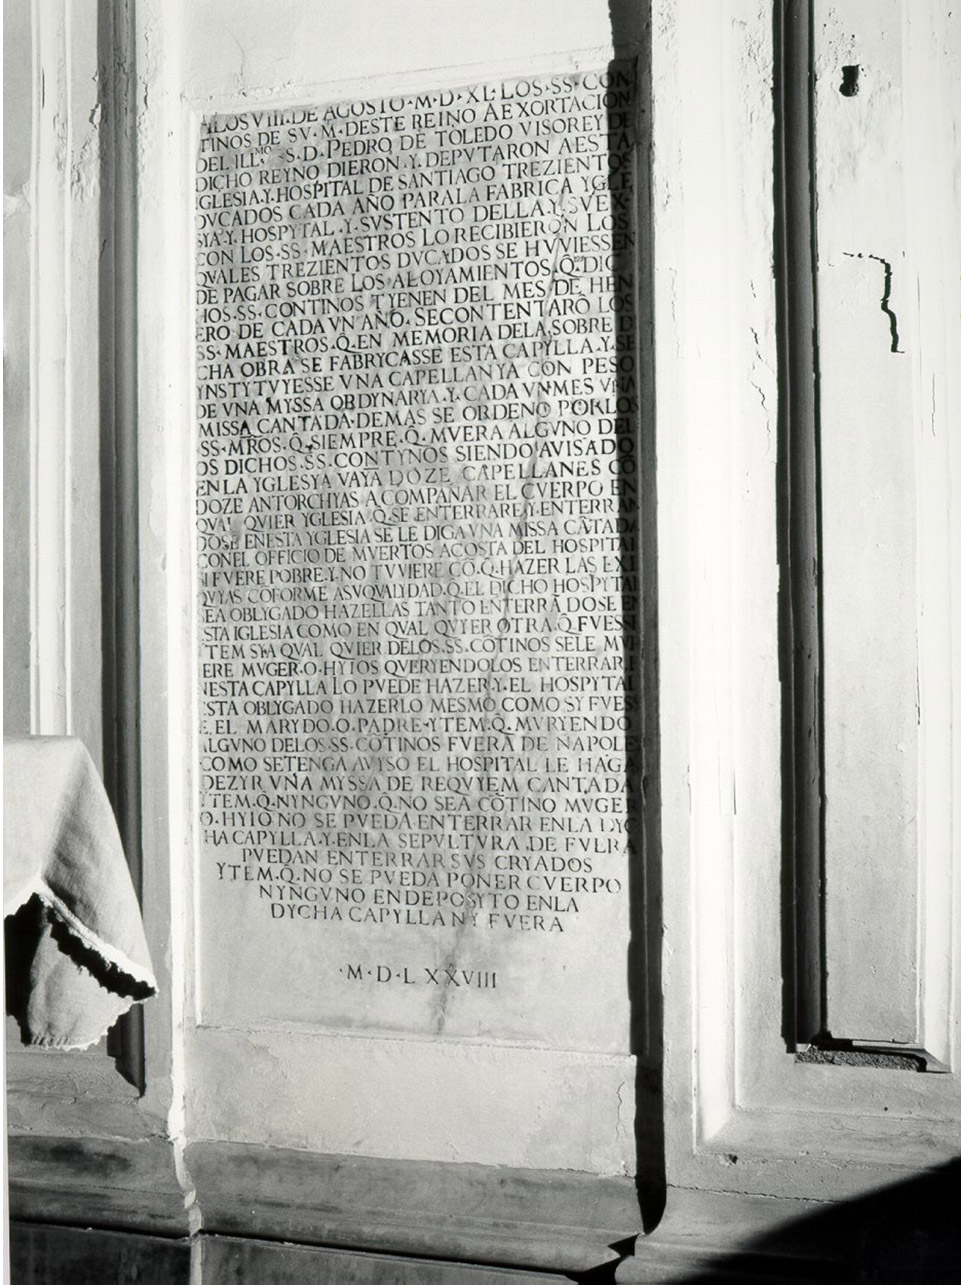 ALOS VIII.DE AGOSTO·M·D·XL·LOS·SS·CON
TINOS DE SV·M·DESTE REINO A EXORTACION
DEL ILL.MO S.D.PEDRO DE TOLEDO VISOREY DE
DICHO REYNO DIERON.Y.DEPVTARON AESTA
IGLESIA.Y.HOSPITAL DE SANTIAGO TREZIENTOS
DVCADOS CADA AÑO PARALA FABRICA YGLE
SYA.Y.HOSPYTAL.Y.SVSTENTO DELLA.Y.SVEX·
CON LOS·SS·MAESTROS LO RECIBIERON LOS
QVALES TREZIENTOS DVCADOS SE HVVIESSEN
DE PAGAR SOBRE LOS ALOYAMIENTOS Q̄ DIC
HOS·SS·CONTINOS TYENEN DEL MES DE HEN
ERO DE CADA VN AÑO.SECONTENTARŌ LOS
SS·MAESTROS.Q̄.EN MEMORIA DELA SOBRE D
CHA OBRA SE FABRYCASSE ESTA CAPYLLA.Y.SE
YNSTYTVYESSE VNA CAPELLANYA CON PESO
DE VNA MYSSA ORDYNARYA.Y.CADA VN MES VNA
MISSA CANTADA·DEMAS SE ORDENO POR LOS
SS·MR̄OS·Q̄·SIEMPRE·Q̄·MVERA ALGVNO DEL
OS DICHOS·SS·CONTYNOS SIENDO AVISADO
ENLA YGLESYA VAYĀ DOZE CAPELLANES CŌ
DOZE ANTORCHYAS ACOMPAÑAR EL CVERPO EN
QVAL QVIER YGLESIA·Q̄·SE ENTERRARE.Y.ENTERRAN
DOSE ENESTA YGLESIA SE LE DIGA VNA MISSA CĀTADA
CONEL OFFICIO DE MVERTOS ACOSTA DEL HOSPITAL
SI FVERE POBRE.Y.NO TVVIERE CO·Q̄·HAZER LAS EXE
QVYAS CŌFORME ASVQVALYDAD.Q̄.EL DICHO HOSPYTAL
SEA OBLYGADO HAZELLAS TANTO ENTERRĀDOSE EN
ESTA IGLESIA COMO EN QVAL QVYER OTRA.Q̄.FVESE
YTEM SYA QVAL QVIER DELOS·SS·CŌTINOS SELE MVR
IERE MVGER.O.HYIOS QVERYENDOLOS ENTERRAR E
NESTA CAPYLLA LO PVEDE HAZER.Y.EL HOSPYTAL
ESTA OBLYGADO HAZERLO MESMO COMO SY FVESS
E.EL MARYDO.O.PADRE·YTEM·Q̄·MVRYENDO
ALGVNO DELOS·SS·CŌTINOS FVERA DE NAPOLES
COMO SETENGA AVYSO EL HOSPITAL LE HAGA
DEZYR VNA MYSSA DE REQVYEM CANTADA
YTEM·Q̄·NYNGVNO·Q̄·NO SEA CŌTINO MVGER
O·HYIO NO SE PVEDA ENTERRAR ENLA DYC
HA CAPYLLA·Y·ENLA SEPVLTVRA DE FVERA
PVEDAN ENTERRAR SVS CRYADOS
YTEM·Q̄·NO SE PVEDA PONER CVERPO
NYNGVNO EN DEPOSYTO ENLA
DYCHA CAPYLLA NY FVERA
·M·D·LXXVIII